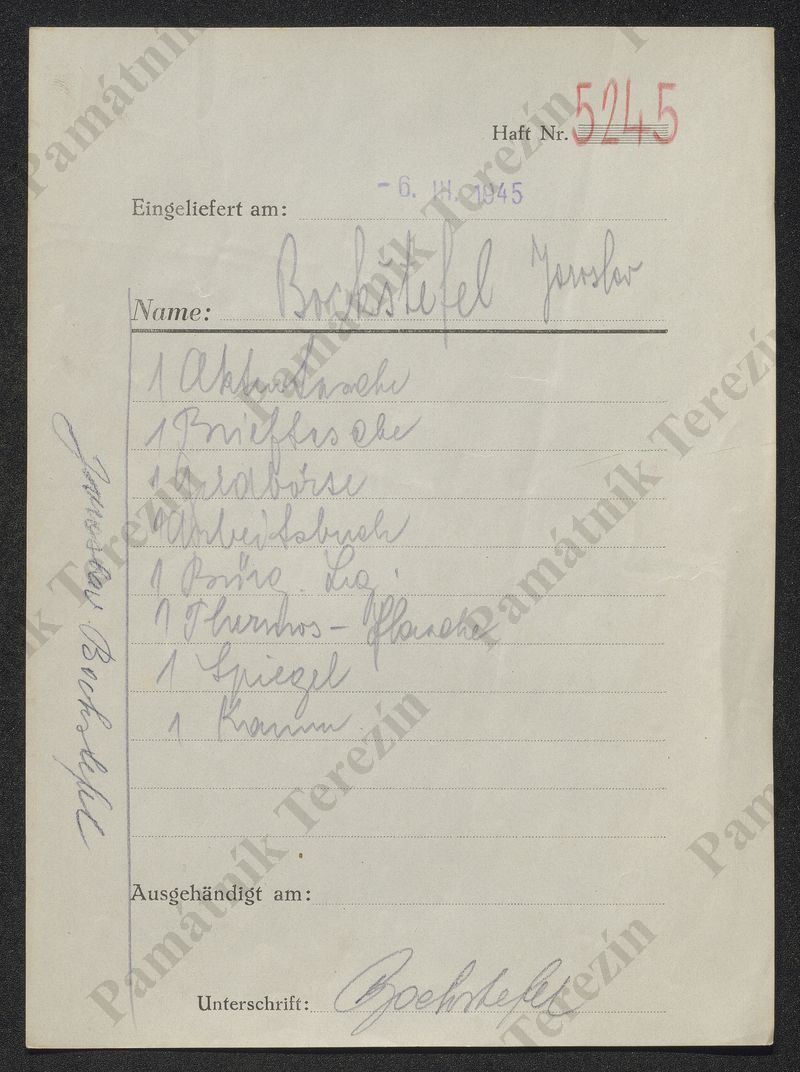 Haft Nr. 5245
Eingeliefert am: - 6. III. 1945
Name: Bockštefel Jaroslav
1 Aktentasche
1 Brieftasche
1 Geldbörse
1 Arbeitsbuch
1 Bürg. Leg.
1 Thermos - flasche
1 Spiegel
1 Kamm
Ausgehändigt am:
Unterschrift: Bochstefel
Jaroslav Bochstefel
Památník Terezín